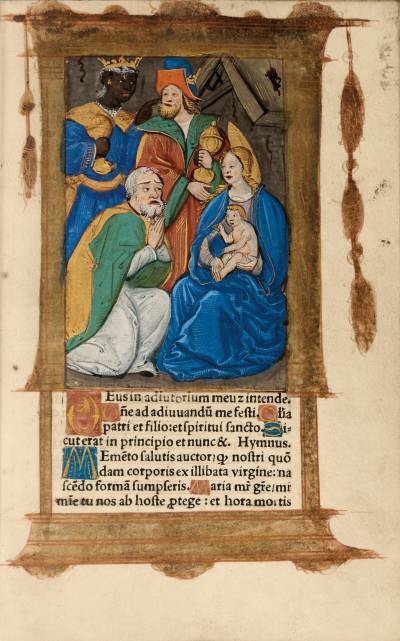 DEus in adiutorium meuz intende.
Dñe ad adiuuandū me festi. Glia
patri et filio: et spiritui sancto. Si-
cut erat in principio et nunc &. Hymnus.
MEmēto salutis auctor/ qꝫ nostri quō
dam corporis ex illibata virgine: na
scēdo formā sumpseris. Maria mr̄ gr̄e/ mr̄
mīe tu nos ab hoste ꝓtege: et hora mortis